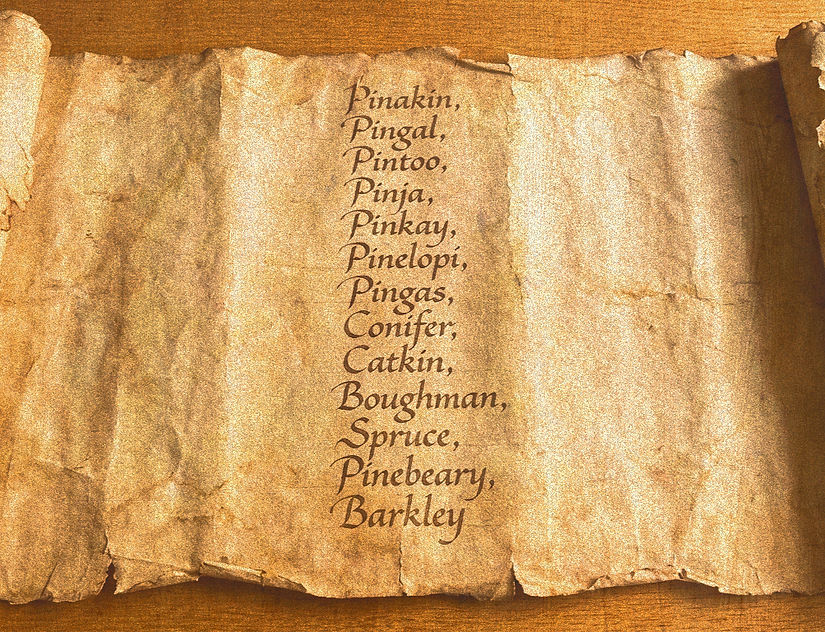 Pinakin,
Pingal,
Pintoo,
Pinja,
Pinkay,
Pinelopi,
Pingas,
Conifer,
Catkin,
Boughman,
Spruce,
Pinebeary,
Barkley